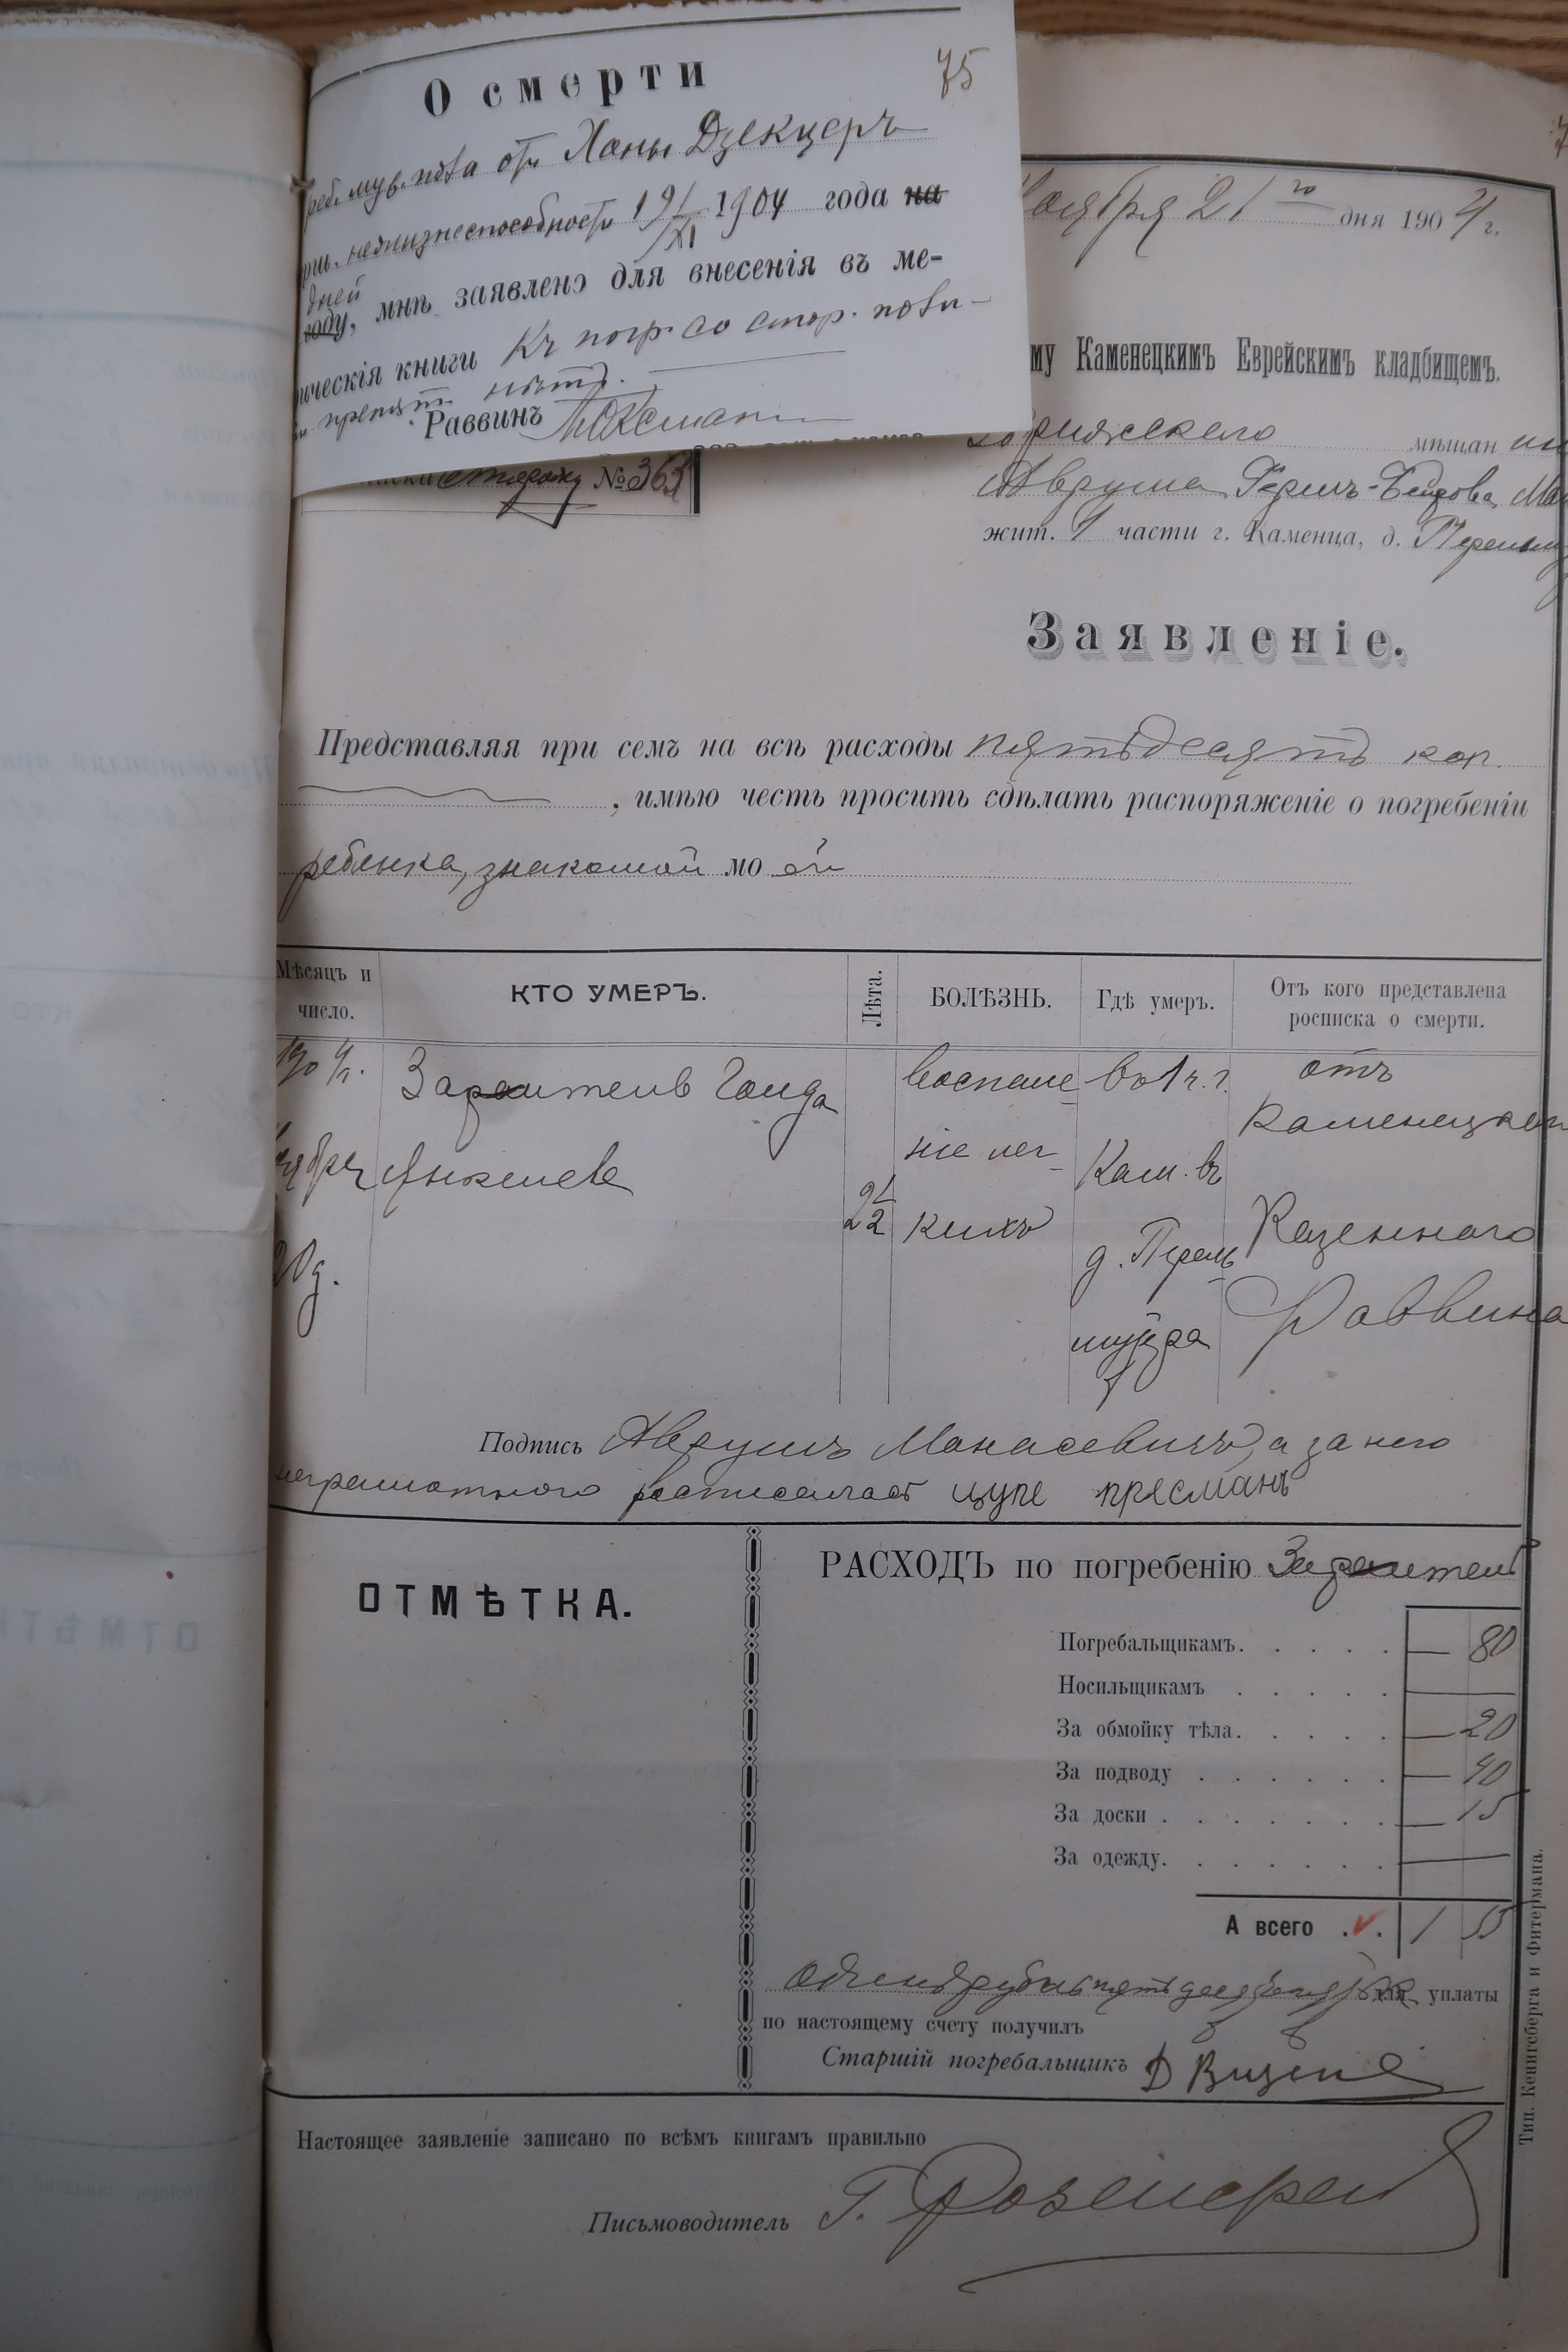 75
О смерти
муж. пола отъ Ханы Дзекцеръ
нежизнеспособности 19/XI 1904 года на
дней
году, мнѣ заявлено для внесенія въ ме-
рическія книги Къ погр. со стор.
препят. нѣтъ.
Раввинъ
Ноября 21го дня 1904 г.
му Каменецкимъ Еврейскимъ кладбищемъ.
мѣщан
Аврума Герш-
жит. 1 части г. Каменца, д.
№ 363
Заявленіе.
Представляя при семъ на всѣ расходы пятьдесятъ коп.
, имѣю честь просить сдѣлать распоряженіе о погребеніи
ребенка, знакомой моей
Мѣсяцъ и число.
КТО УМЕРЪ.
Лѣта.
БОЛѢЗНЬ.
Гдѣ умеръ.
Отъ кого представлена росписка о смерти.
1904 г.
ноября
20 д.
Голда
2 1/2
воспале
ніе лег
кихъ
въ 1 ч. г.
Кам. въ
д. Перель
мутра
отъ
Каменецкаго
Казеннаго
Раввина
Подпись Аврумъ Манасевичъ, а за него
неграмотного росписался цупе пресманъ
ОТМѢТКА.
РАСХОДЪ по погребенію
Погребальщикамъ. — 80
Носильщикамъ —
За обмойку тѣла. — 20
За подводу — 40
За доски — 15
За одежду. —
А всего . 1 55
одинъ рубль пятьдесятъ для уплаты
по настоящему счету получилъ
Старшій погребальщикъ
Настоящее заявленіе записано по всѣмъ книгамъ правильно
Письмоводитель Г.
Тип. Кенигсберга и Фитермана.